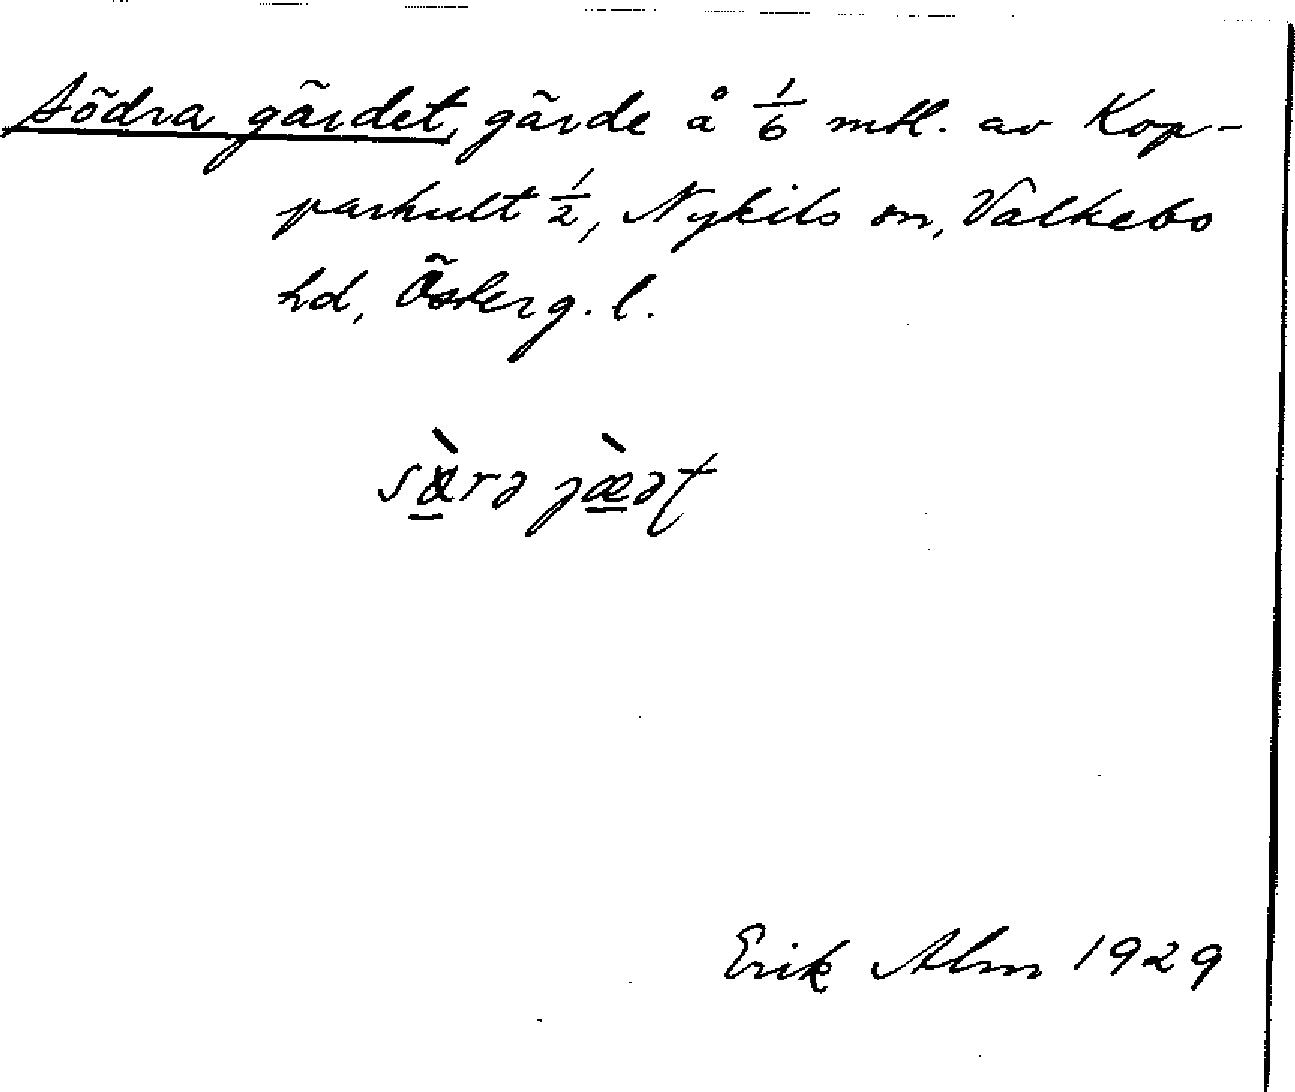 Södra gärdet, gärde å 1/6 mtl. av Kop-
parhult 1/2, Nykils sn, Valkebo
hd, Österg. l.
Erik Alm 1929